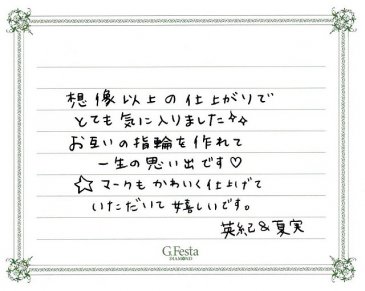 想像以上の仕上がりで
とても気に入りました☆☆
お互いの指輪を作れて
一生の思い出です♡
☆マークもかわいく仕上げて
いただいて嬉しいです。
英紀&夏実
G.Festa
DIAMOND